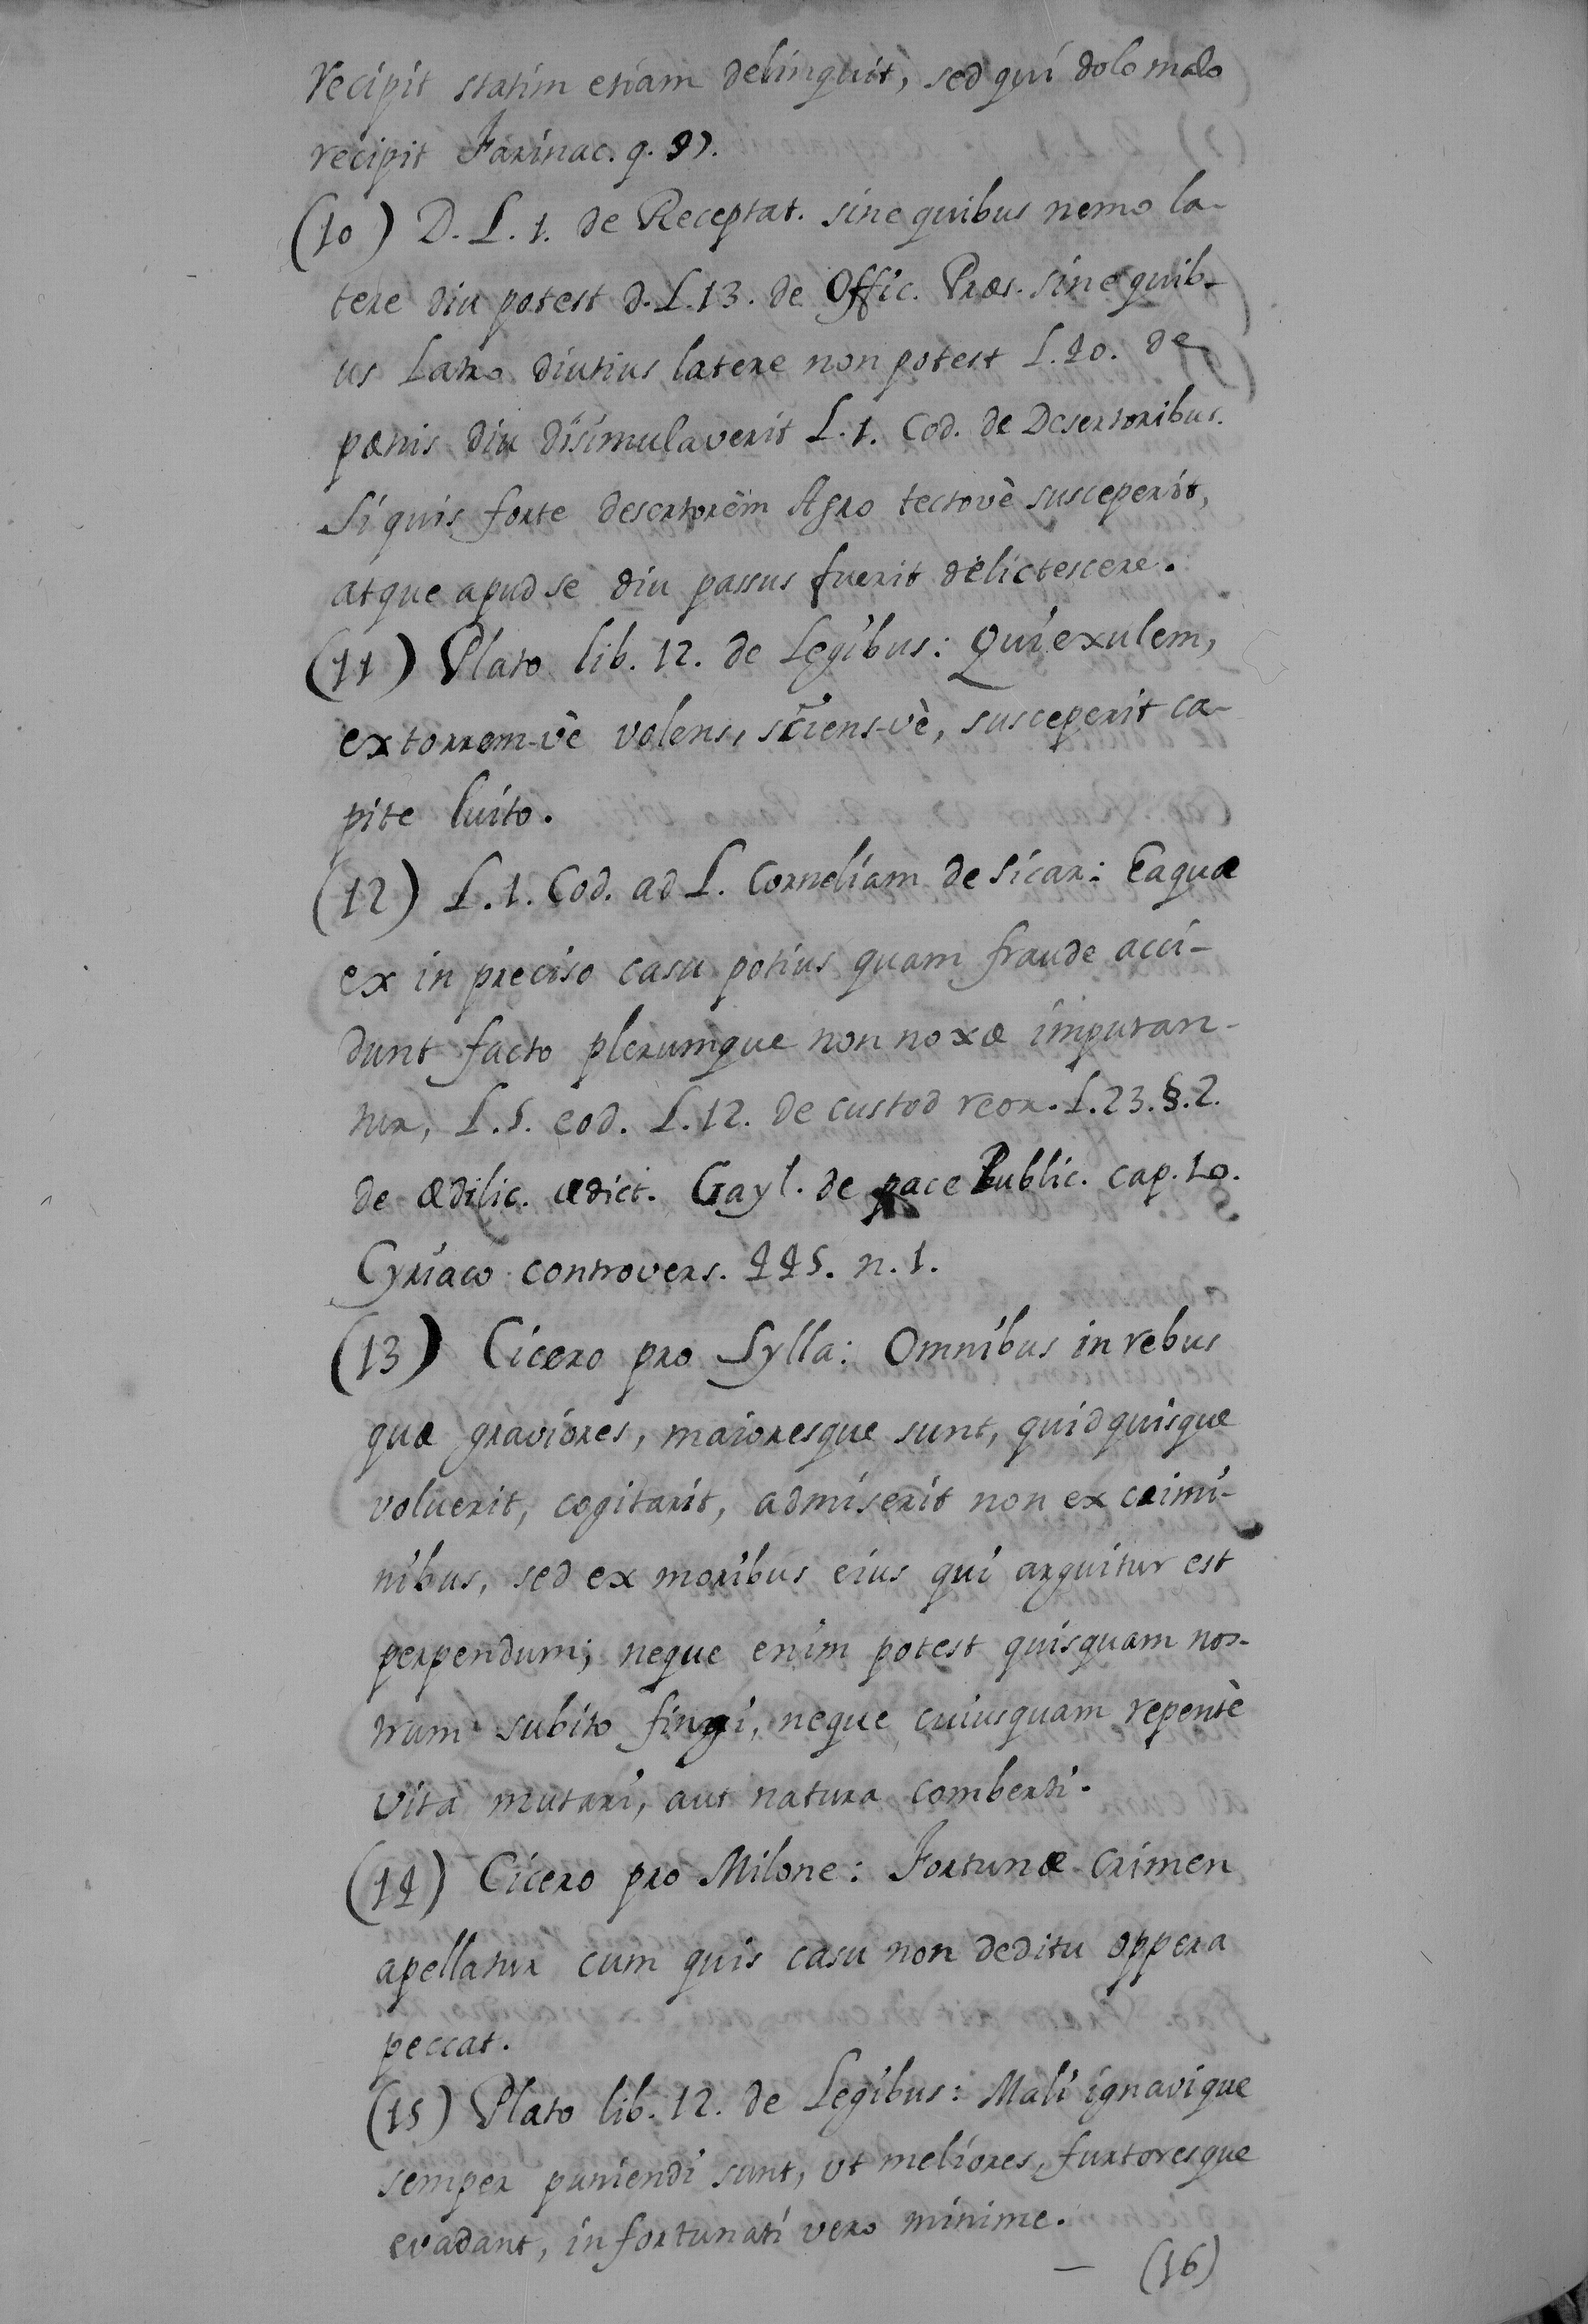 recipit statim etiam delinquit, sed qui dolo malo
recipit Farinac. q. 9).
(10) D. L. 1. de Receptat. sine quibus nemo la-
tere diu potest d. L. 13. de Offic. Præs. sine quib-
us Latro diutius latere non potest L. 40. de
pænis diu disimulaverit L. 1. Cod. de Desertoribus.
Si quis forte desertorem Agro tectovè susceperit,
atque apud se diu passus fuerit delictescere.
(11) Plato lib. 12. de Legibus: Qui exulem,
extorrem-vè volens, sciens-vè, susceperit ca-
pite luito.
(12) L. 1. Cod. ad L. Corneliam de Sicar: Ea quæ
ex in preciso casu potius quam fraude acci-
dunt facto plerumque non noxæ imputan-
tur, L. 5. eod. L. 12. de custod reor. L. 23. §. 2.
de ædilic. ædict. Gayl. de pace Public. cap. 10.
Cyriaco controvers. 445. n. 1.
(13) Cicero pro Sylla: Omnibus in rebus
quæ graviores, maioresque sunt, quid quisque
voluerit, cogitarit, admiserit non ex crimi-
nibus, sed ex moribus eius qui arguitur est
perpendum; neque enim potest quisquam nos-
trum subito fingi, neque cuiusquam repentè
vita mutari, aut natura comberti.
(14) Cicero pro Milone: Fortunæ crimen
apellatur cum quis casu non deditu oppera
peccat.
(15) Plato lib. 12. de Legibus: Mali ignavique
semper puniendi sunt, ut meliores, furtoresque
evadant, infortunati vero minime.
— (16)